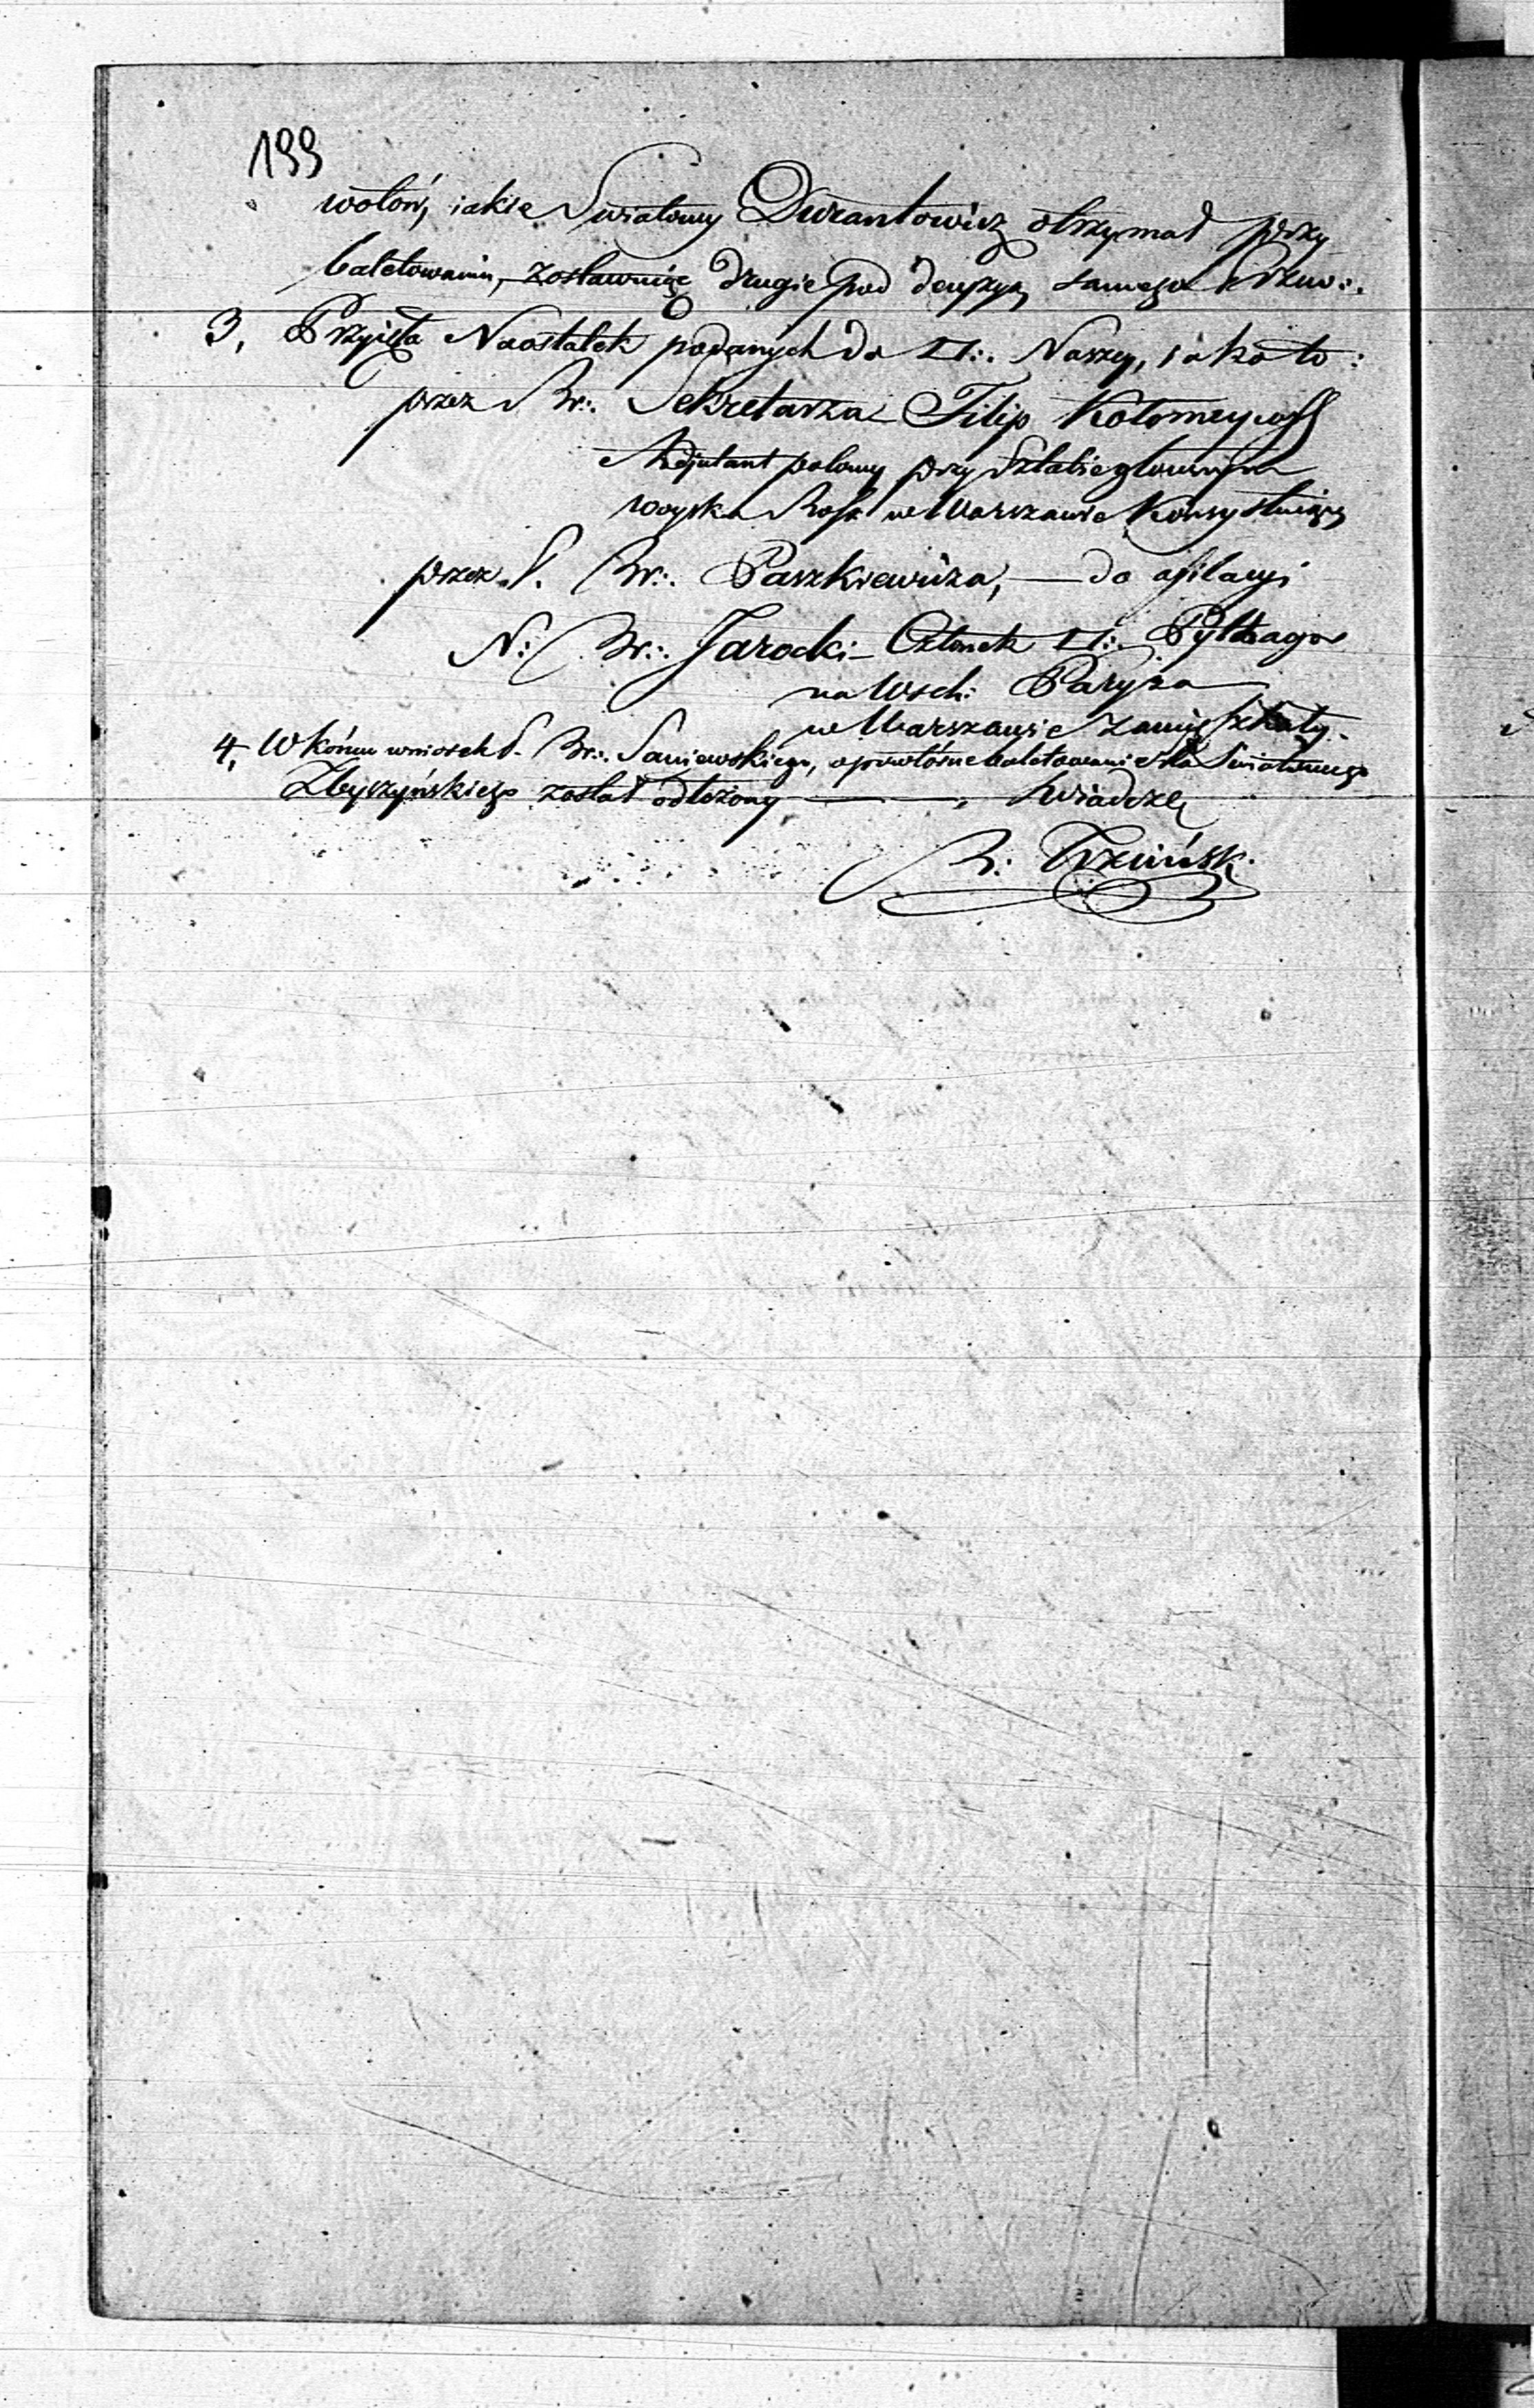 199
wotów, iakie Swiatowy Durantowicz otrzymał przy
baletowaniu, zostawuiąc drugie pod decyzyą samego Przew:.
3, Przyięła Na ostatek podanych do □:. Naszey, iako to:
przez Br:. Sekretarza Filip Kołomeycoff
Adjutant polowy przy Sztabie głównym
woyska Ross: w Warszawie Konsystuiący
przez S. Br:. Paszkiewicza, — do afilacyi
N: Br:. Jarocki – Członek □:. Pythagor
na Wsch: Paryża
w Warszawie zamięszkały.
4, W końcu wniosek S. Br:. Saniewskiego, o powtórne baletowanie dla Swiatowego
Zbyszyńskiego został odłożony — — , Swiadczę